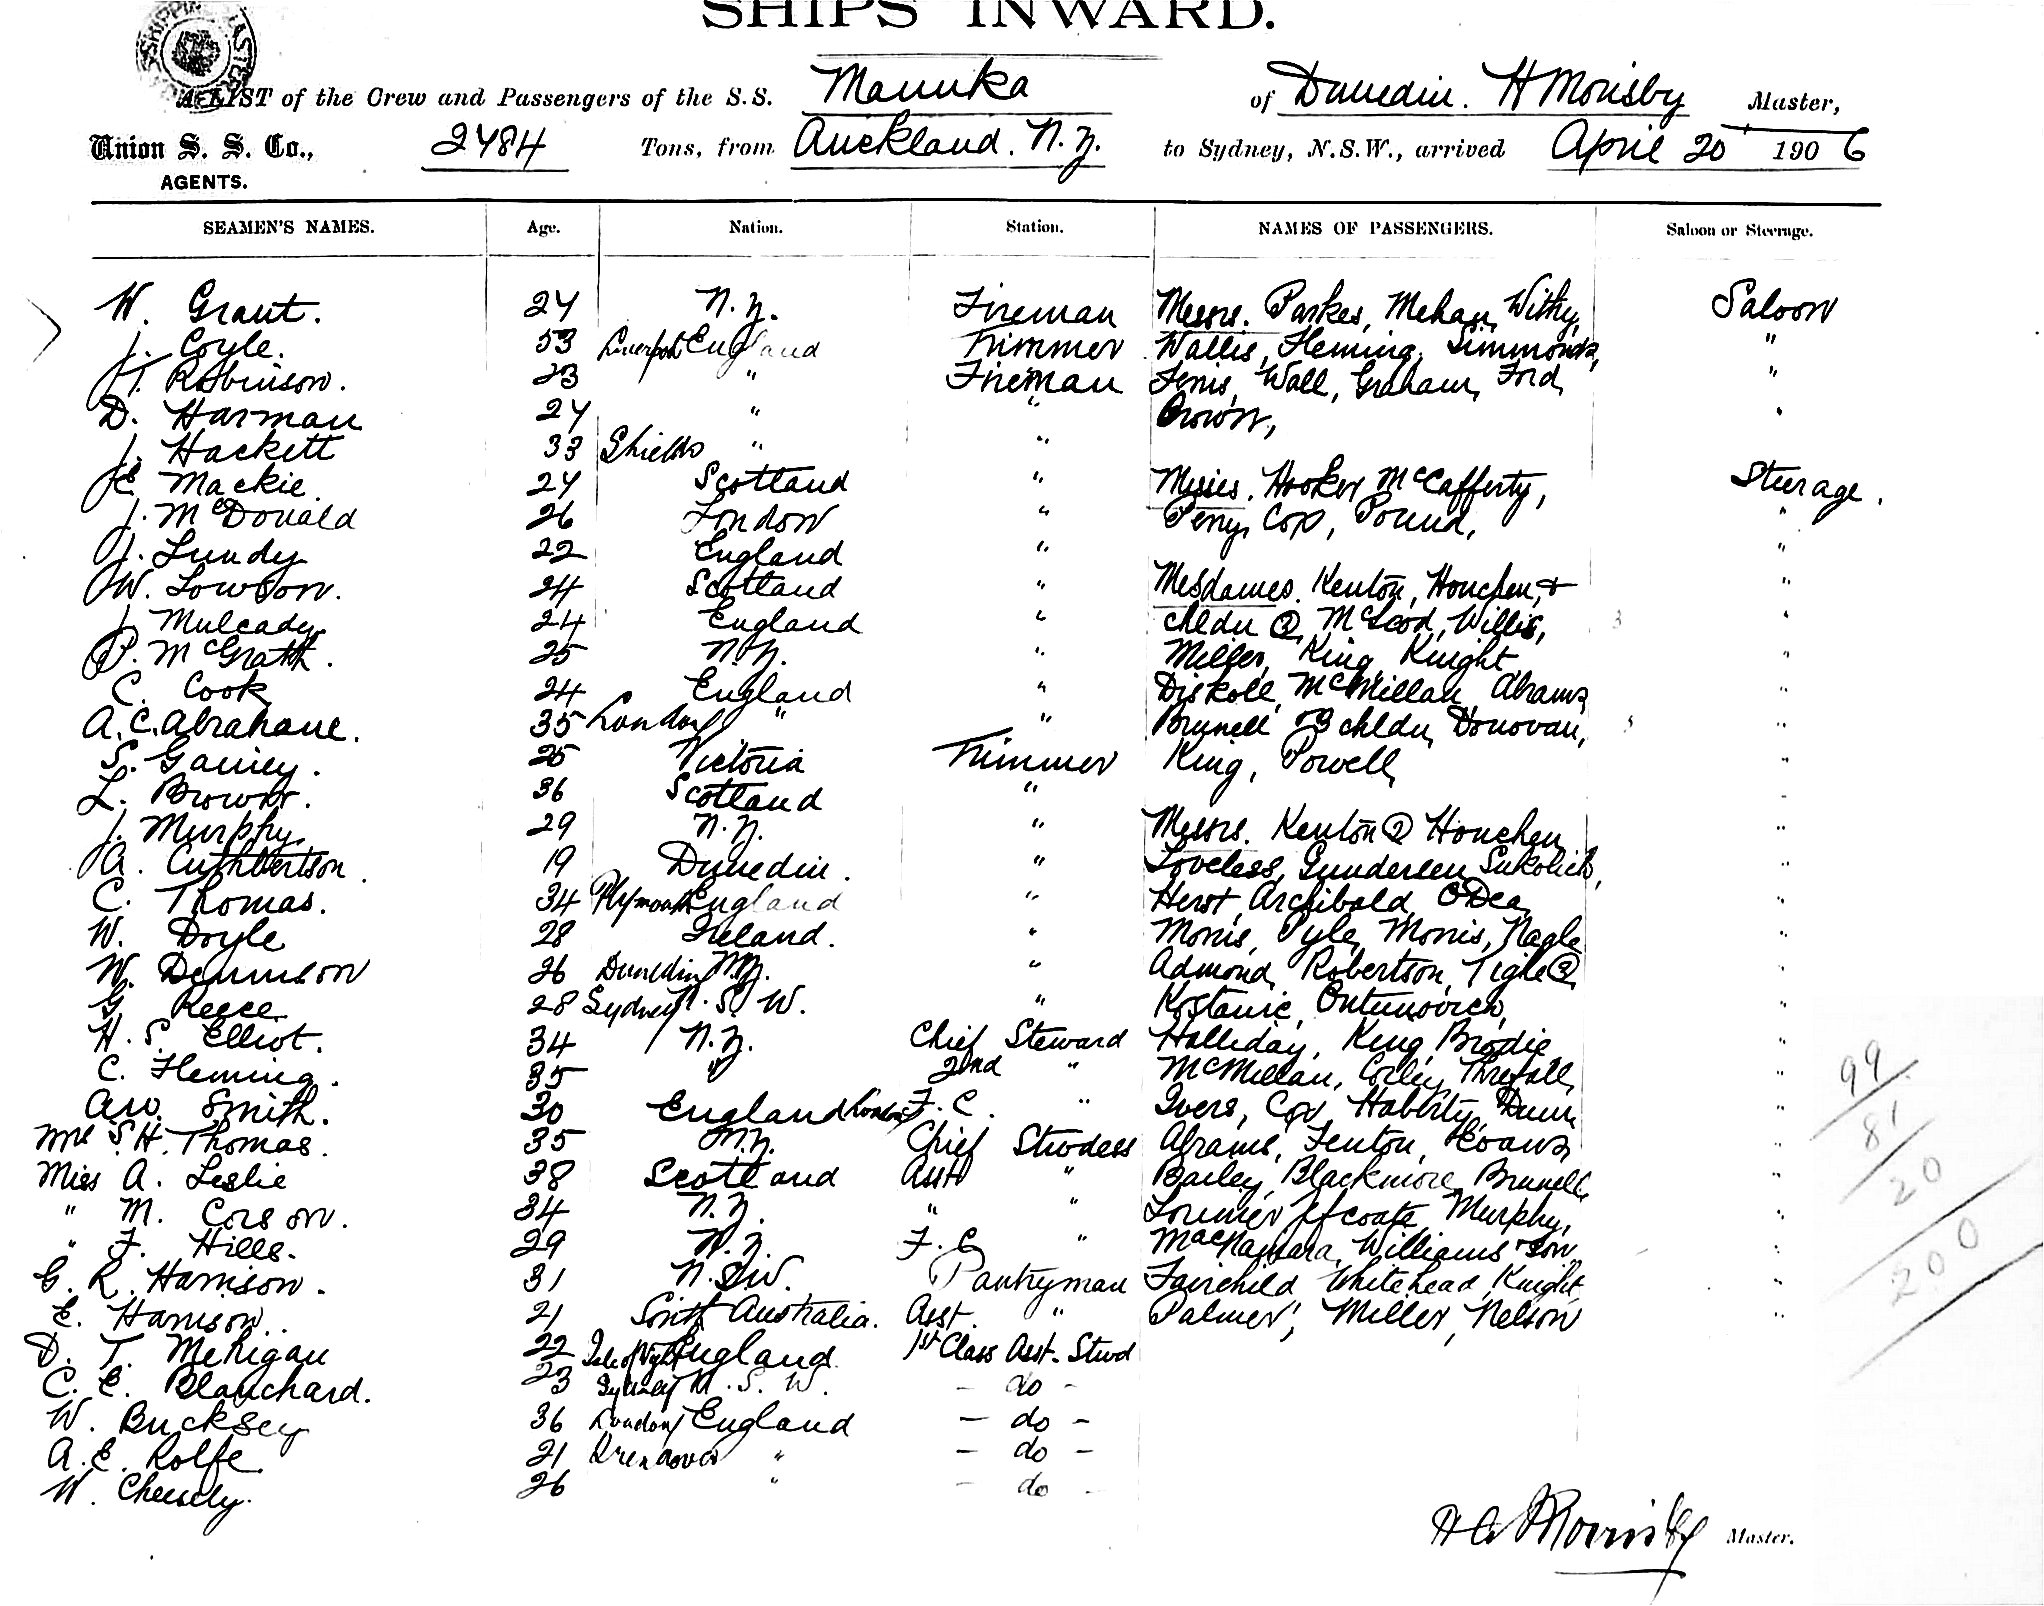 SHIPS INWARD.
A LIST of the Crew and Passengers of the S.S. Manuka of Dunedin. H Morisby Master,
Union S. S. Co., AGENTS. 2484 Tons, from Auckland. N.Z. to Sydney, N.S.W., arrived April 20 1906
SEAMEN'S NAMES. Age. Nation. Station. NAMES OF PASSENGERS. Saloon or Steerage.
W. Grant. 24 N.Z. Fireman Messrs. Parkes, Mehan, Withy, Saloon
J. Coyle. 53 Liverpool England Trimmer Wallis, Fleming, Simmonds, "
T. Robinson. 23 " Fireman Wall, Graham, Ford, "
D. Harman 24 " " Brown, "
J. Hackett 33 Shields " "
E. Mackie. 24 Scotland " Misses. Hooker, McCafferty, Steerage.
J. McDonald 26 London " Perry, Cox, Pound, "
J. Lundy 22 England " "
W. Lowson. 24 Scotland " Mesdames. Kenton, Houchen, & "
J. Mulcady 24 England " chldn (2), McLeod, Willis, 3 "
P. McGrath. 25 N.Z. " Miller, King, Knight "
C. Cook 24 England " Diskoll, McMillan, Abrams, "
A. C. Abrahave. 35 London " " Brunell & 3 chldn, Donovan, "
S. Gainey. 25 Victoria Trimmer King, Powell, "
L. Brown. 36 Scotland " "
J. Murphy. 29 N.Z. " Messrs. Kenton (2) Houchen, "
A. Cuthbertson. 19 Dunedin. " Loveless, Gundersen, "
C. Thomas. 34 Plymouth England " Herst, Archibald, O'Dea, "
W. Doyle 28 Ireland. " Morris, Pyle, Morris, Nagle "
W. Dennison 26 Dunedin N.Z. " Admond, Robertson, Tighe (2), "
G. Reece. 28 Sydney N.S.W. " Kostanic, "
H. S. Elliot. 34 N.Z. Chief Steward Halliday, King, Brodie "
C. Fleming. 35 " 2nd " McMillan, Corley, "
Aw. Smith. 30 England London F. C. " Ivers, Cox, Haberty, Dunn, "
Mrs S. H. Thomas. 35 N.Z. Chief Stwdess Abrams, Fenton, Evans, "
Miss A. Leslie 38 Scotland Asst " Bailey, Blackmore, Brunell, "
" M. Corson. 34 N.Z. " " Murphy, "
" F. Hills. 29 N.Z. F. C " MacNamara, Williams & son, "
G. R. Harrison. 31 N.S.W. Pantryman Fairchild, Whitehead, Knight, "
E. Harrison. 21 South Australia. Asst. " Palmer, Miller, Nelson "
D. T. Mehigan 22 Isle of Wight England. 1st Class Asst. Stwd
C. E. Blanchard. 23 Sydney N.S.W. - do -
W. Bucksey 36 London England - do -
A. E. Rolfe. 21 " - do -
W. Cheesely. 26 " - do -
99
81
20
200
H A Morrisby Master.